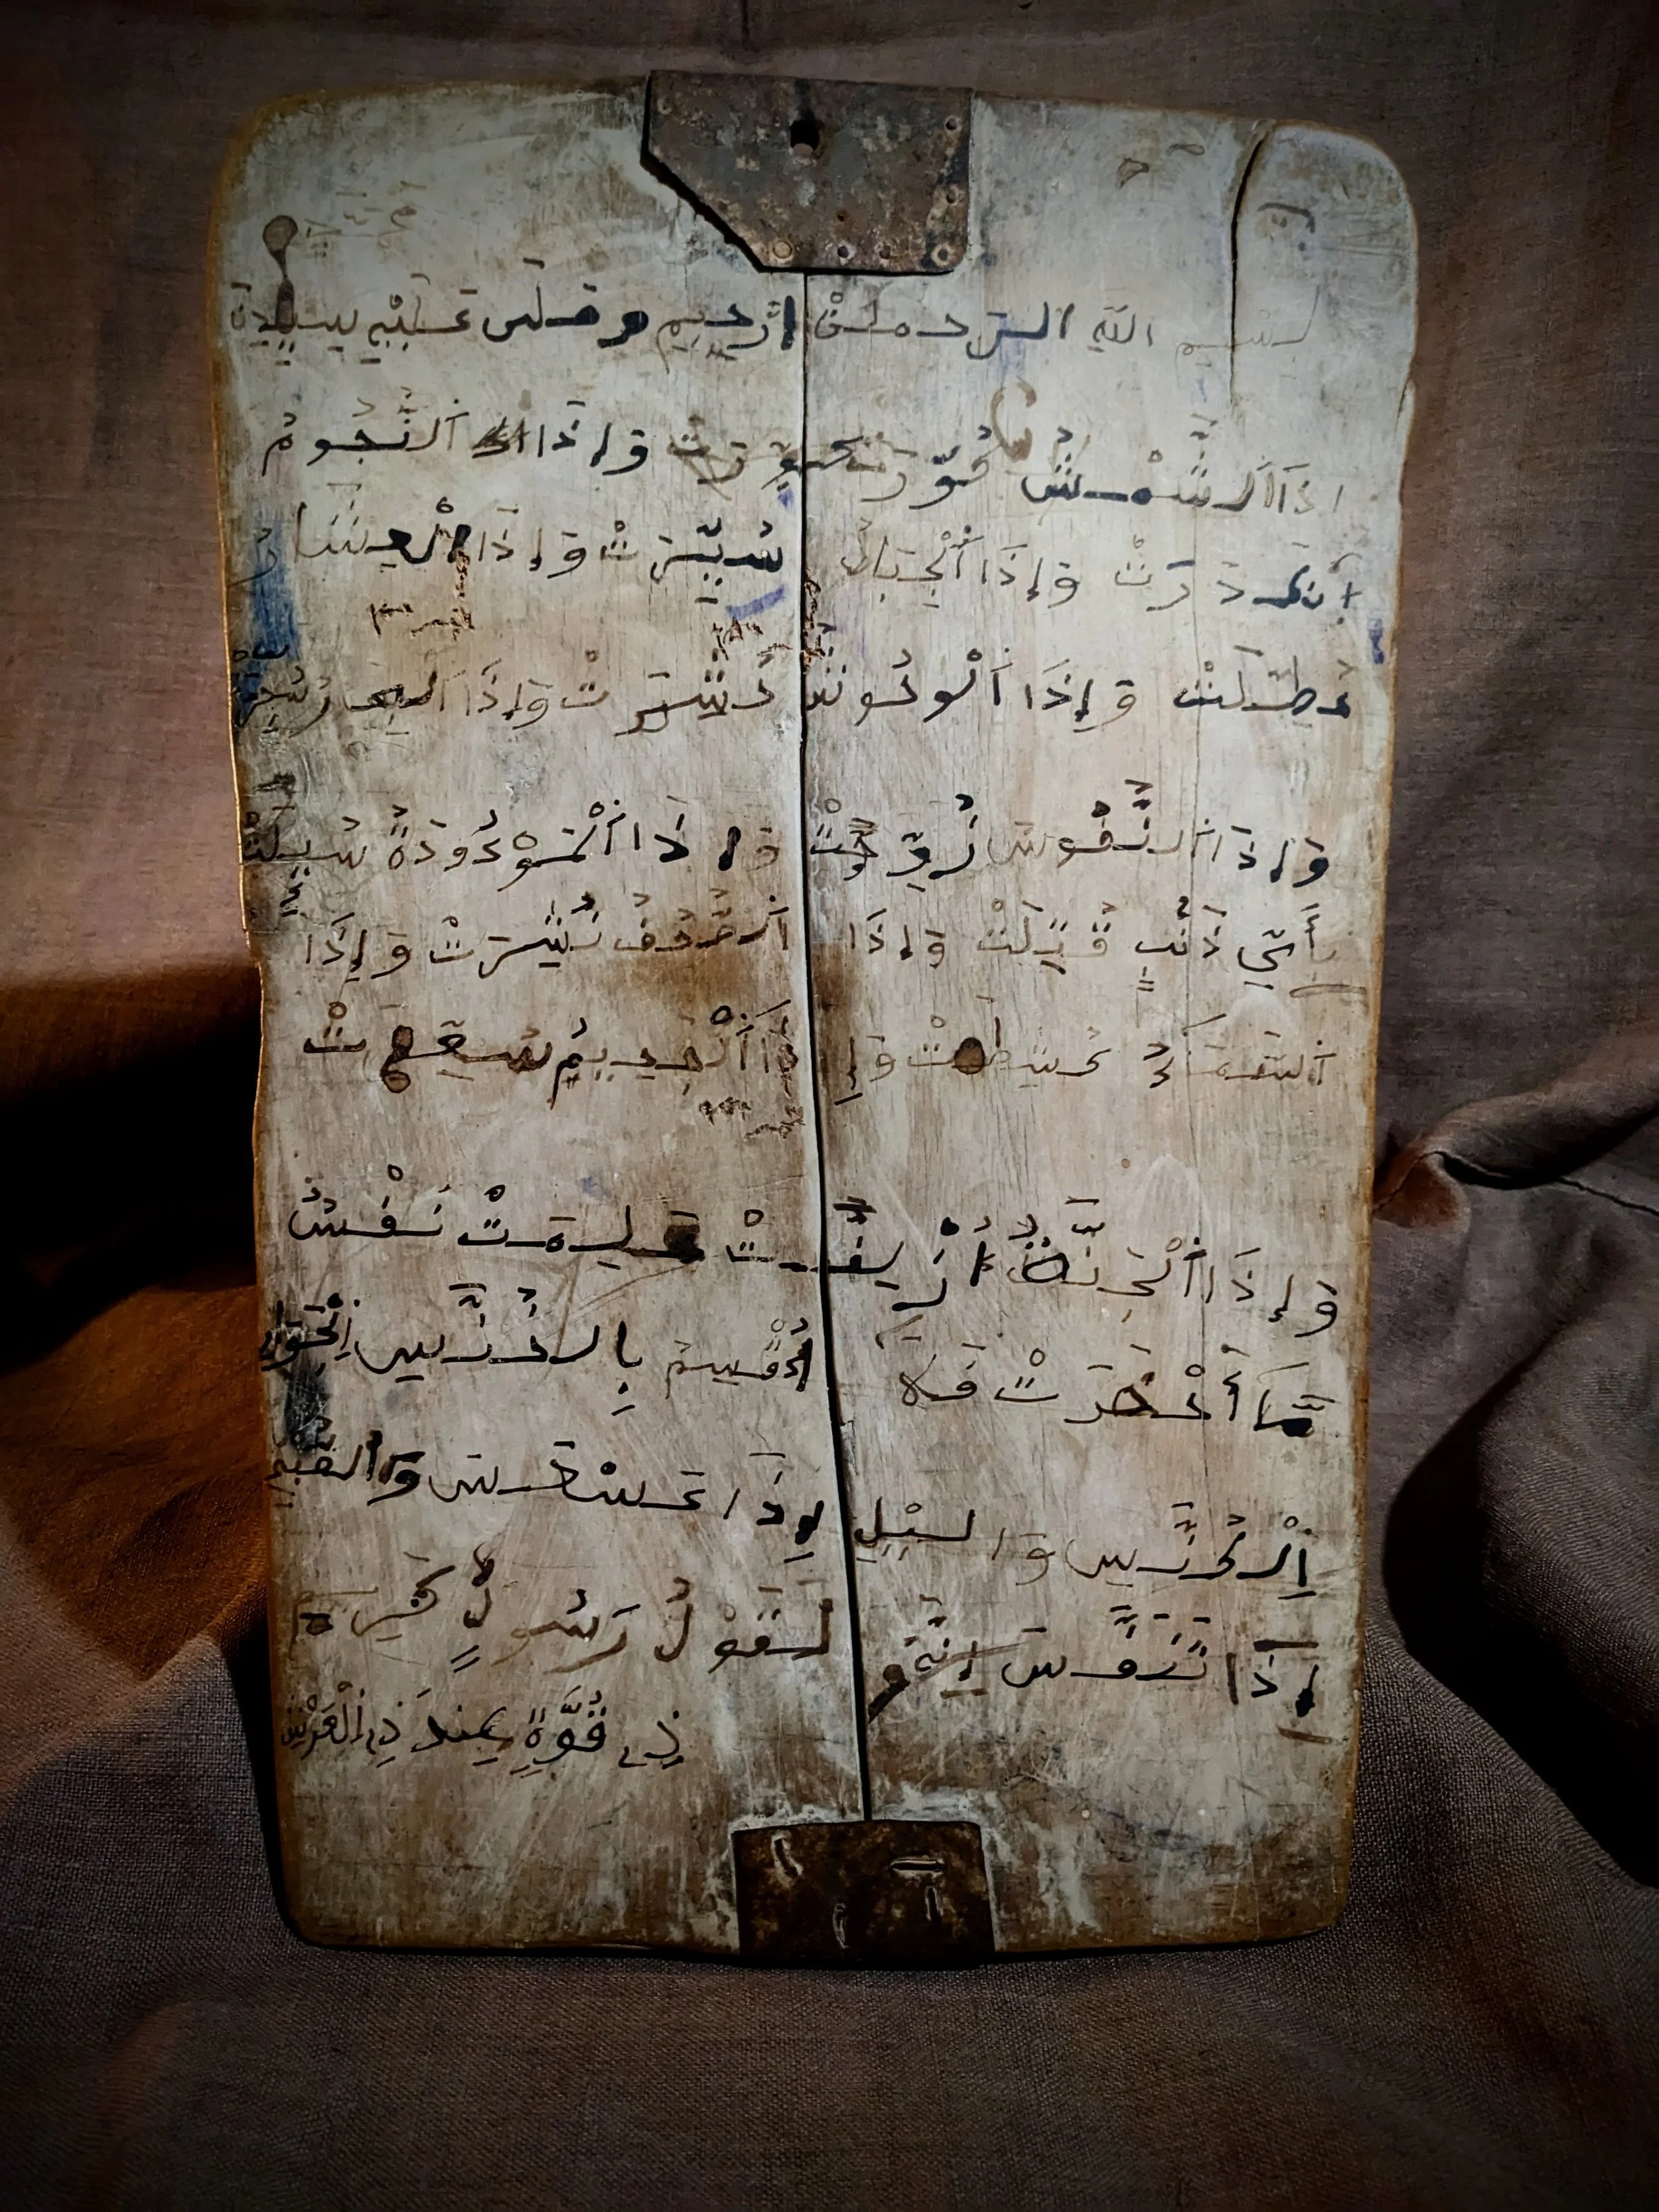 بسم الله الرحمن الرحيم وصلى
إذا الشمس كورت وإذا النجوم
انكدرت وإذا الجبال سيرت وإذا العشار
عطلت وإذا الوحوش حشرت وإذا البحار سجرت
وإذا النفوس زوجت وإذا الموءودة سيلت
بأي ذنب قتلت وإذا الصحف نشرت وإذا
السماء كشطت وإذا الجحيم سعرت
وإذا الجنة أزلفت علمت نفس
ما أحضرت فلا أقسم بالخنس الجوار
الكنس والليل إذا عسعس والصبح
إذا تنفس إنه لقول رسول كريم
ذي قوة عند ذي العرش